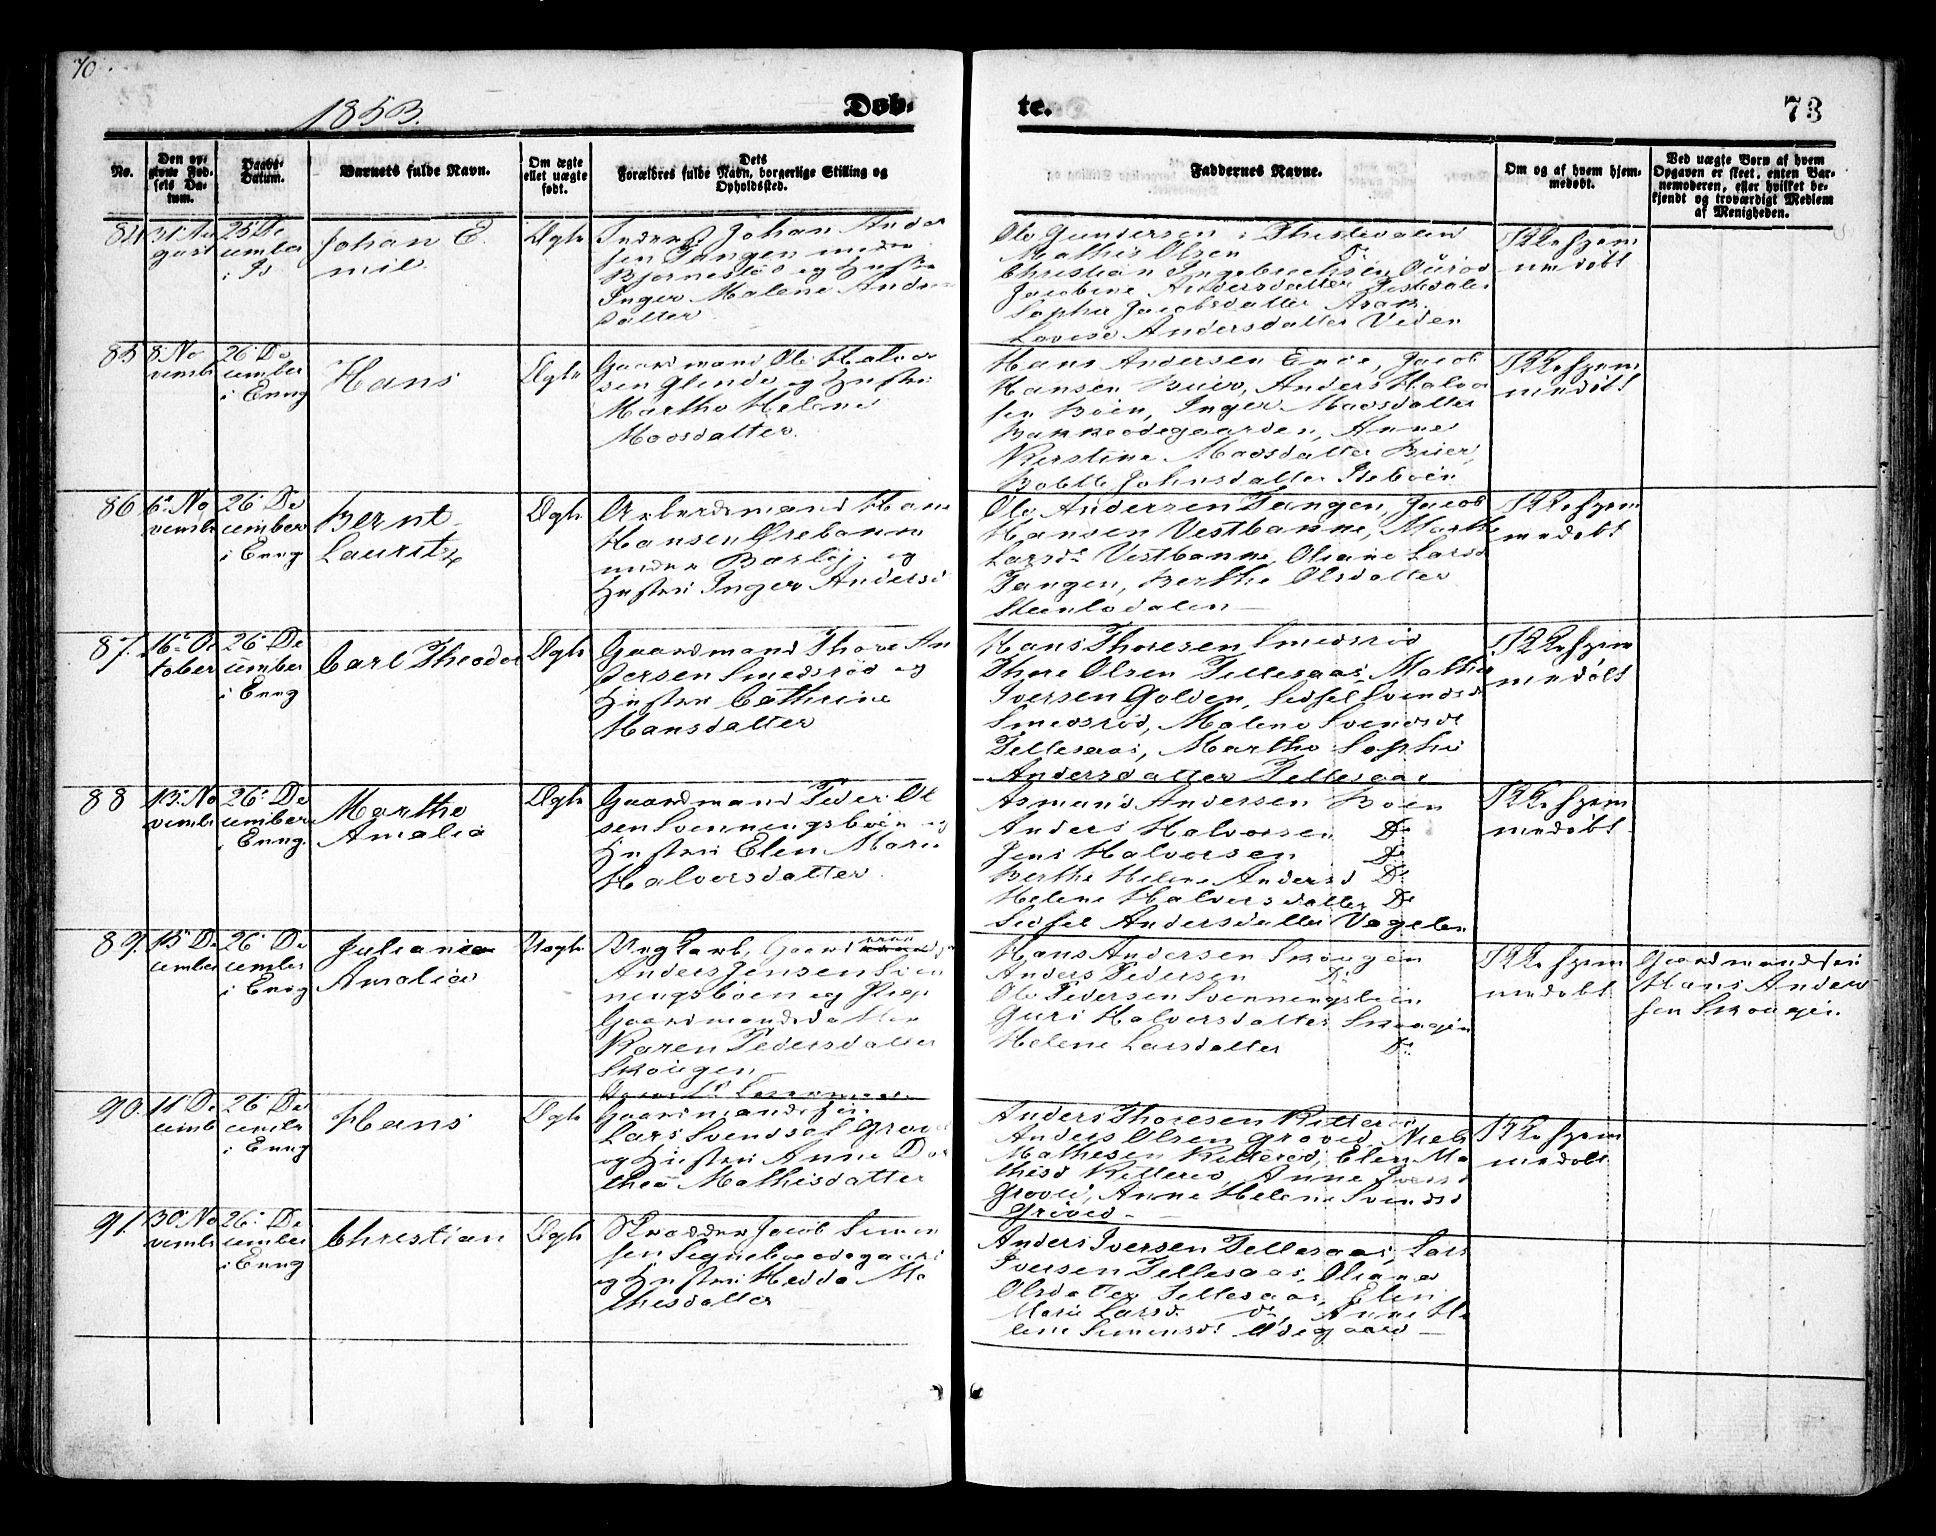 70.
1853.
Døb-
te.
73
No.
Den op-
givne Fød-
sels Da-
tum.
Daabs-
Datum.
Barnets fulde Navn.
Om ægte
ellet uægte
født.
Dets
Forældres fulde Navn, borgerlige Stilling og
Opholdssted.
Faddernes Navne.
Om og af hvem hjem-
medøbt.
Ved uægte Børn af hvem
Opgaven er skeet, enten Bar-
nemoderen, eller hvilket be-
kjendt og troværdigt Medlem
af Menigheden.
84
31 Au
gust
25 De
cember
i Is
Johan E.
mil
Ægte
Inders. Johan Ander
sen Tangen under
Bjørnestøe og Hustru
Inger Malene Anders
datter
Ole Gundersen i Thistedalen
Mathis Olsen Do
Christian Ingebrechtsen
Jacobine Andersdatter Tistedalen
Sophie Jacobsdatter Asak
Lovise Andersdatter Veden
Ikke hjem
medøbt
85
8 No
vembr
26 De
cember
i Enng
Hans
Ægte
Gaardmand Ole Halvor
sen Glende og Hustru
Marthe Helene
Moosdatter.
Hans Andersen, Jacob
Hansen Buer, Anders Halvor
sen Bøen, Inger Moosdatter
Bakkeødegaarden, Anne
Kirstine Moosdatter Buer,
Bolette Johnsdatter Isebøen
Ikke hjem
medøbt
86
6 No
vembr
26 De
cember
i Enng
Bernt
Lauritz
Ægte
Arbeidsmand Hans
Hansen Ørebanen
under Berby og
Hustru Inger Andersd
Ole Andersen Tangen, Jacob
Hansen Vestbanne, Marthe
Larsd. Vestbanne, Oliane Larsd
Tangen, Berthe Olsdatter
Steenlsdalen
Ikke hjem
medøbt
87.
16 Oc
tober
26 De
cember
i Enng
Carl Theodor
Ægte
Gaardmand Thore An
dersen Smedsrød og
Hustru Cathrine
Hansdatter
Hans Thoresen Smedsrød
Thore Olsen Tellesaas, Mathis
Iversen Golden, Sidsel Svendsd
Smedsrød, Malene Svendsd
Tellesaas, Marthe Sophie
Andersdatter Tellesaas
Ikke hjem
medøbt
88
13 No
vembr
26 De
cember
i Enng.
Marthe
Amalia
Ægte
Gaardmand Peder Ol
sen Svenningsbøen og
Hustru Elen Marie
Halvorsdatter.
Asmund Andersen Bøen
Anders Halvorsen Do
Jens Halvorsen Do
Berthe Helene Andersd Do
Helene Halvorsdatter Do
Sidsel Andersdatter Vagelen
Ikke hjem
medøbt
89.
15 De
cember
26 De
cember
i Enng
Juliane
Amalia
Uægte
Ungkarl, Gaard
Anders Jensen Sven
ningsbøen og Pige
Gaardmandsdatter
Karen Pedersdatter
Skougen
Hans Andersen Skougen
Anders Pedersen Do
Ole Pedersen Svenningsbøen
Guri Halvorsdatter Skougen
Helene Larsdatter Do
Ikke hjem
medøbt
Gaardmandssøn
Hans Ander
sen Skougen.
90.
11 De
cemb
26 De
cembr
i Enng
Hans
Ægte
Gaardmandssøn
Lars Svendsen Groved
og Hustru Anne Dor
thea Mathisdatter
Anders Thoresen Kittered
Anders Olsen Groved, Niels
Mathesen Kittered, Elen Ma
thisd Kittered, Anne Iversd
Groved, Anne Helene Svendsd
Groved
Ikke hjem
medøbt
91.
30 No
vembr
26 De
cember
i Enng
Christian
Ægte
Skrædder Jacob Simon
sen Segneboødegaard
og Hustru Hedda Ma
thisdatter
Anders Iversen Tellesaas, Lars
Iversen Tellesaas, Oliane
Olsdatter Tellesaas, Elen
Marie Larsd do, Anne He
lene Simonsd. Ødegaard